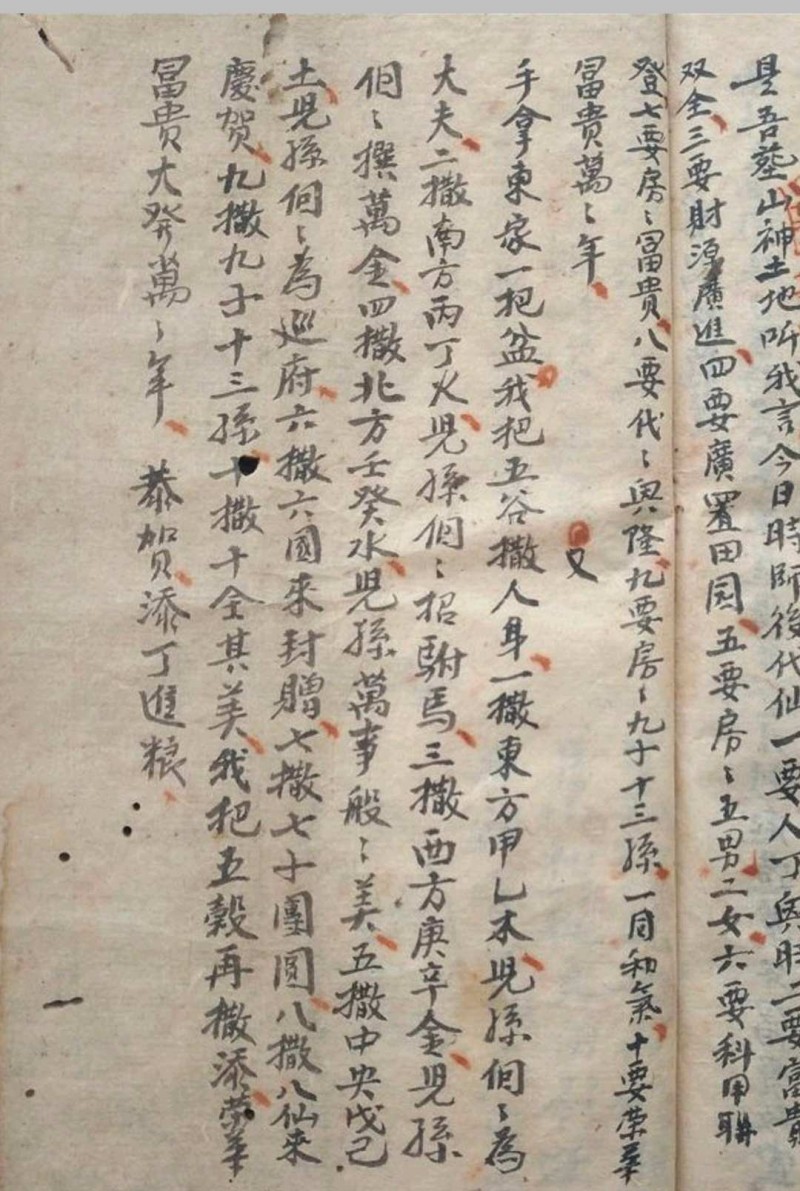 是吾塟山神土地听我言今日時師後代仙一要人丁興旺二要富貴
双全三要財源廣進四要廣置田园五要房〻五男二女六要科甲聯
登七要房〻富貴八要代〻興隆九要房〻九子十三孫一同和氣十要荣華
冨貴萬〻年
又
手拿東家一把盆我把五谷撒人身一撒東方甲乙木児孫個〻為
大夫二撒南方丙丁火児孫個〻招駙馬三撒西方庚辛金児孫
個〻撰萬金四撒北方壬癸水児孫萬事般〻美五撒中央戊己
土児孫個〻為巡府六撒六國来封贈七撒七子團圓八撒八仙来
慶贺九撒九子十三孫十撒十全其美我把五穀再撒添荣華
冨貴大発萬〻年 恭贺添丁進粮